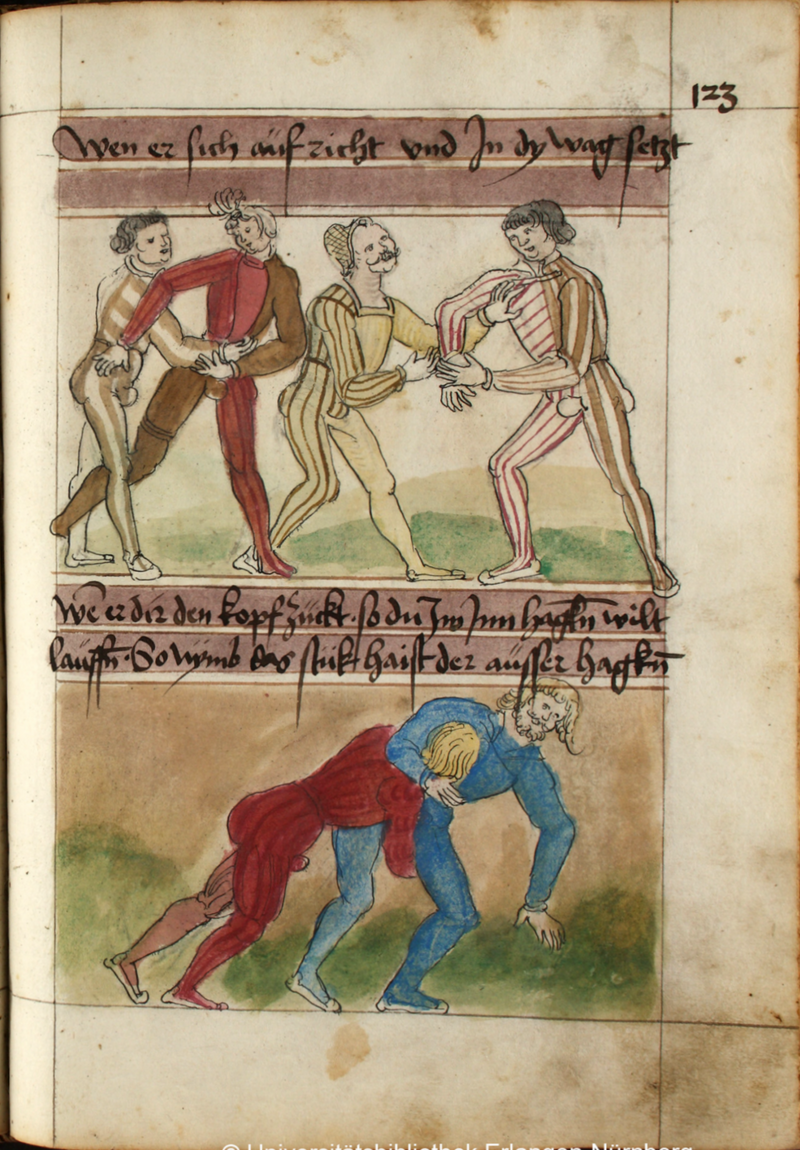 123
Wen er sich auf richt vnd In dy wag setzt
We er dir den kopf zuckt · so du Im Inn hagkn wilt
lauffn · So nymb das stuk haist der ausser hagkn
© Universitätsbibliothek Erlangen-Nürnberg